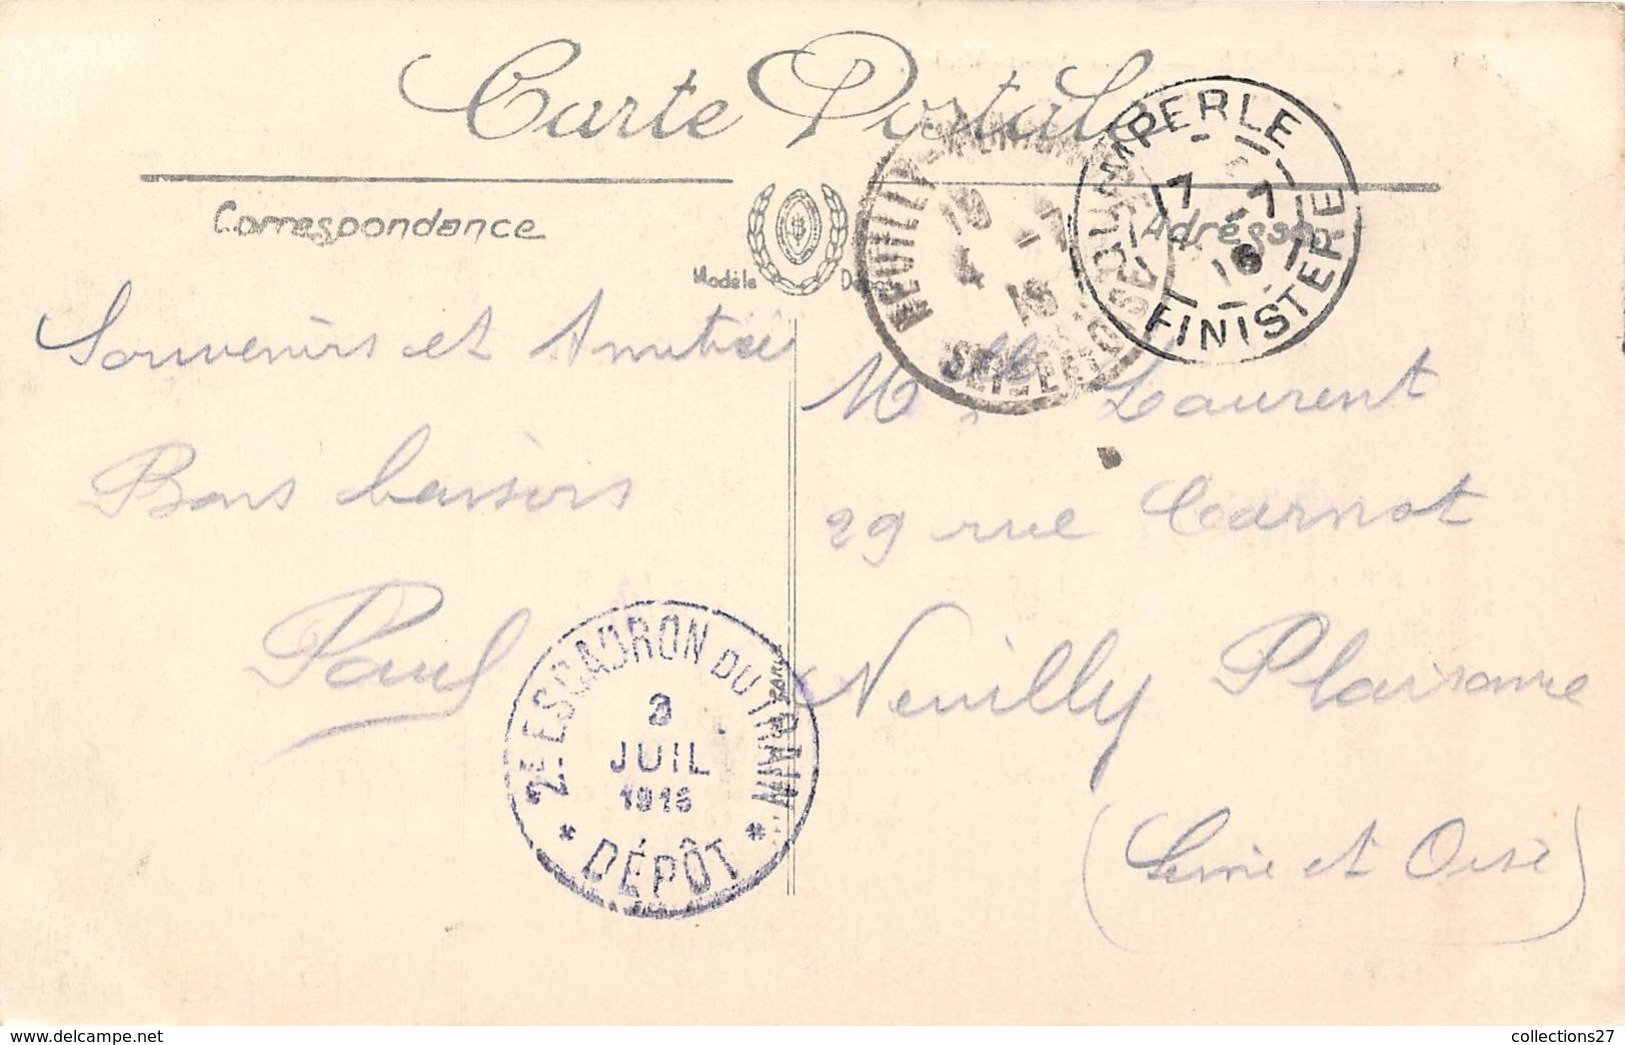 Carte Postale
Correspondance
Modèle
Adresse
Souvenirs et Amitié
Bons baisers
Paul
Mlle Laurent
29 rue Carnot
Neuilly Plaisance
(Seine et Oise)
QUIMPERLE
7 -7
16
FINISTERE
NEUILLY-PLAISANCE
-7
16
SEINE-ET-OISE
2E ESCADRON DU TRAIN
3
JUIL
1916
* DÉPÔT *
collections27